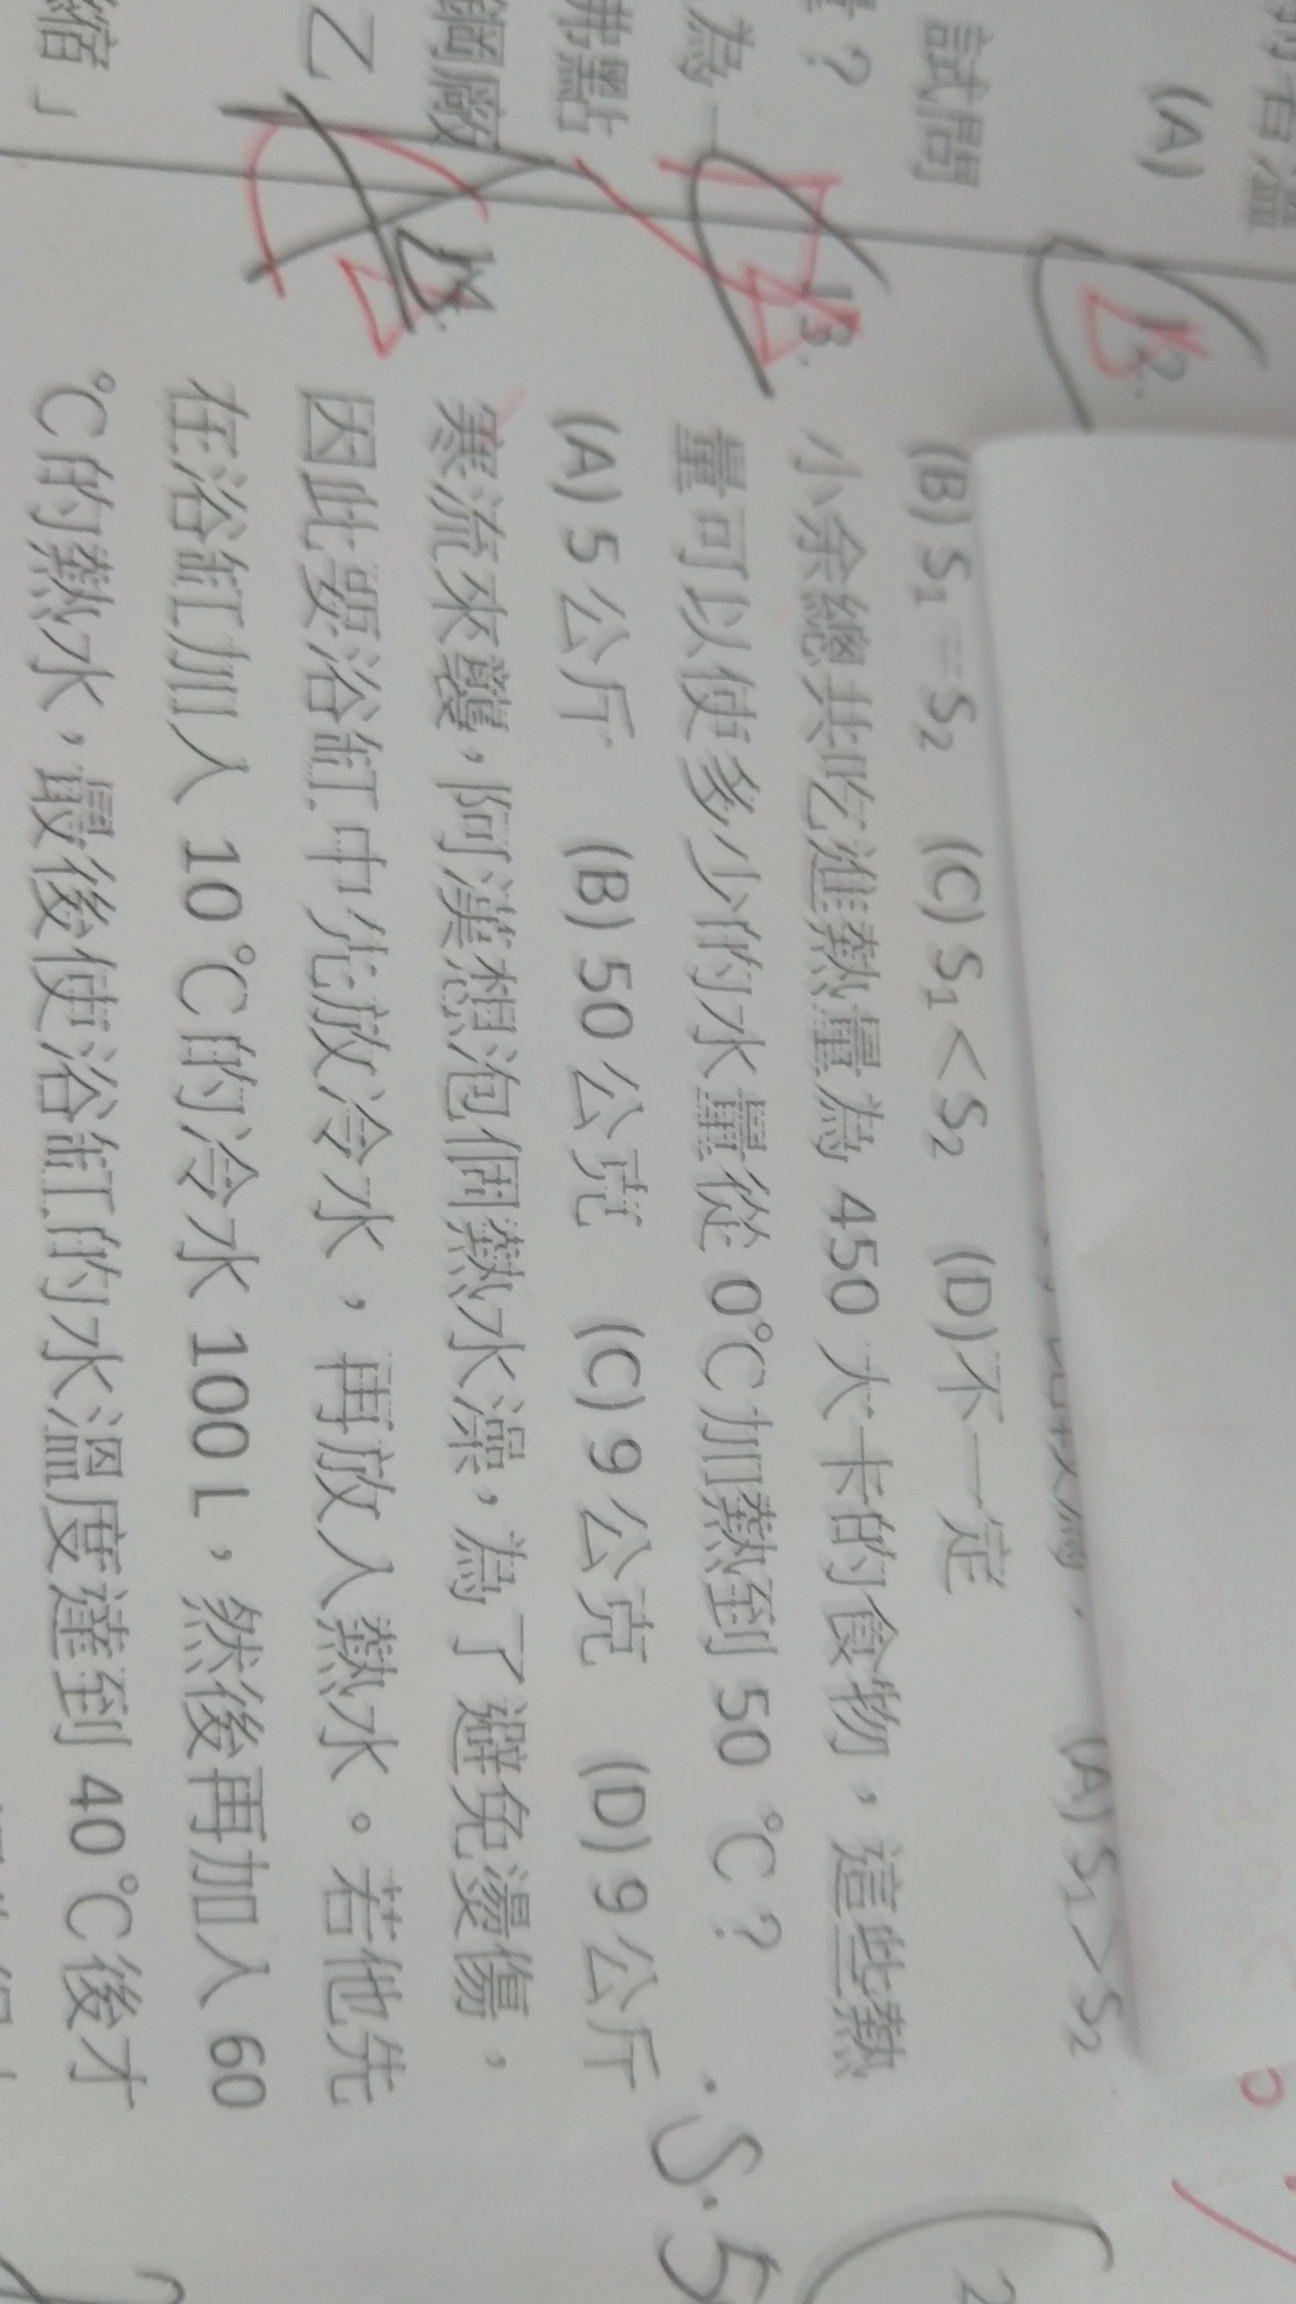 (A) S₁>S₂
(B) S₁=S₂ (C) S₁<S₂ (D)不一定
13.
小余總共吃進熱量為 450 大卡的食物，這些熱
量可以使多少的水量從 0℃加熱到 50 ℃？
(A) 5 公斤 (B) 50 公克 (C) 9 公克 (D) 9 公斤
14.
寒流來襲，阿漢想泡個熱水澡，為了避免燙傷，
因此要浴缸中先放冷水，再放入熱水。若他先
在浴缸加入 10℃的冷水 100 L，然後再加入 60
℃的熱水，最後使浴缸的水溫度達到 40℃後才
(A)
試問
？
為一
沸點
鋼廠
乙
縮」